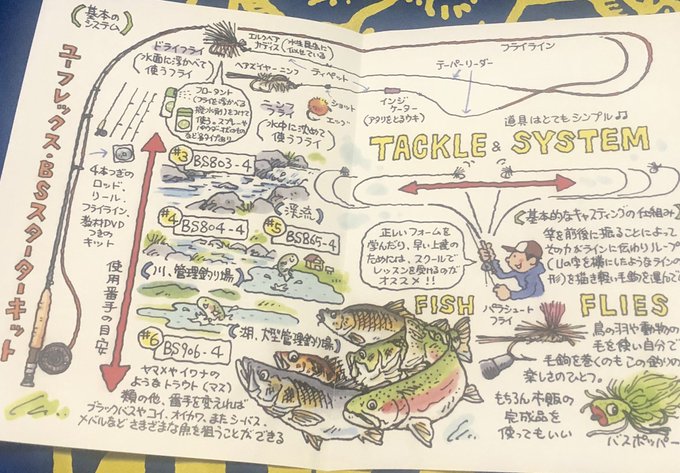 基本の
システム
ユーフレックス・BSスターターキット
ドライフライ
(水面に浮かべて
使うフライ)
エルクヘア
カディス
水生昆虫に
似せている
フロータント
(フライを浮かべる
撥水剤)をつけて
使う。スプレーや
パウダー、
など多タイプあり
ヘアズイヤーニンフ
ティペット
(水中に沈めて
使うフライ)
ショット
エッグ
インジ
ケーター
(アタリをとるウキ)
テーパーリーダー
フライライン
道具はとてもシンプル♪♪
TACKLE & SYSTEM
4本つぎの
ロッド、
リール、
フライライン、
教材DVD
つきの
キット
使用番手の目安
#3 BS803-4
渓流
#4 BS804-4
#5 BS865-4
川、管理釣り場
湖、大型管理釣り場
#6 BS906-4
ヤマメやイワナの
ようなトラウト(マス)
類の他、番手を変えれば
ブラックバスやコイ、オイカワ、またシーバス、
メバルなどさまざまな魚を狙うことができる
正しいフォームを
学んだり、早い上達の
ためには、スクールで
レッスンを受けるのが
オススメ!!
基本的なキャスティングの仕組み
竿を前後に振ることによって
その力がラインに伝わりループ
(Uの字を横にしたようなラインの
形)を描き軽い毛鉤を運んで
FISH
FLIES
パラシュート
フライ
鳥の羽や動物の
毛を使い自分で
毛鉤を巻くのもこの釣りの
楽しさのひとつ。
もちろん市販の
完成品を
使ってもいい
バスポッパー